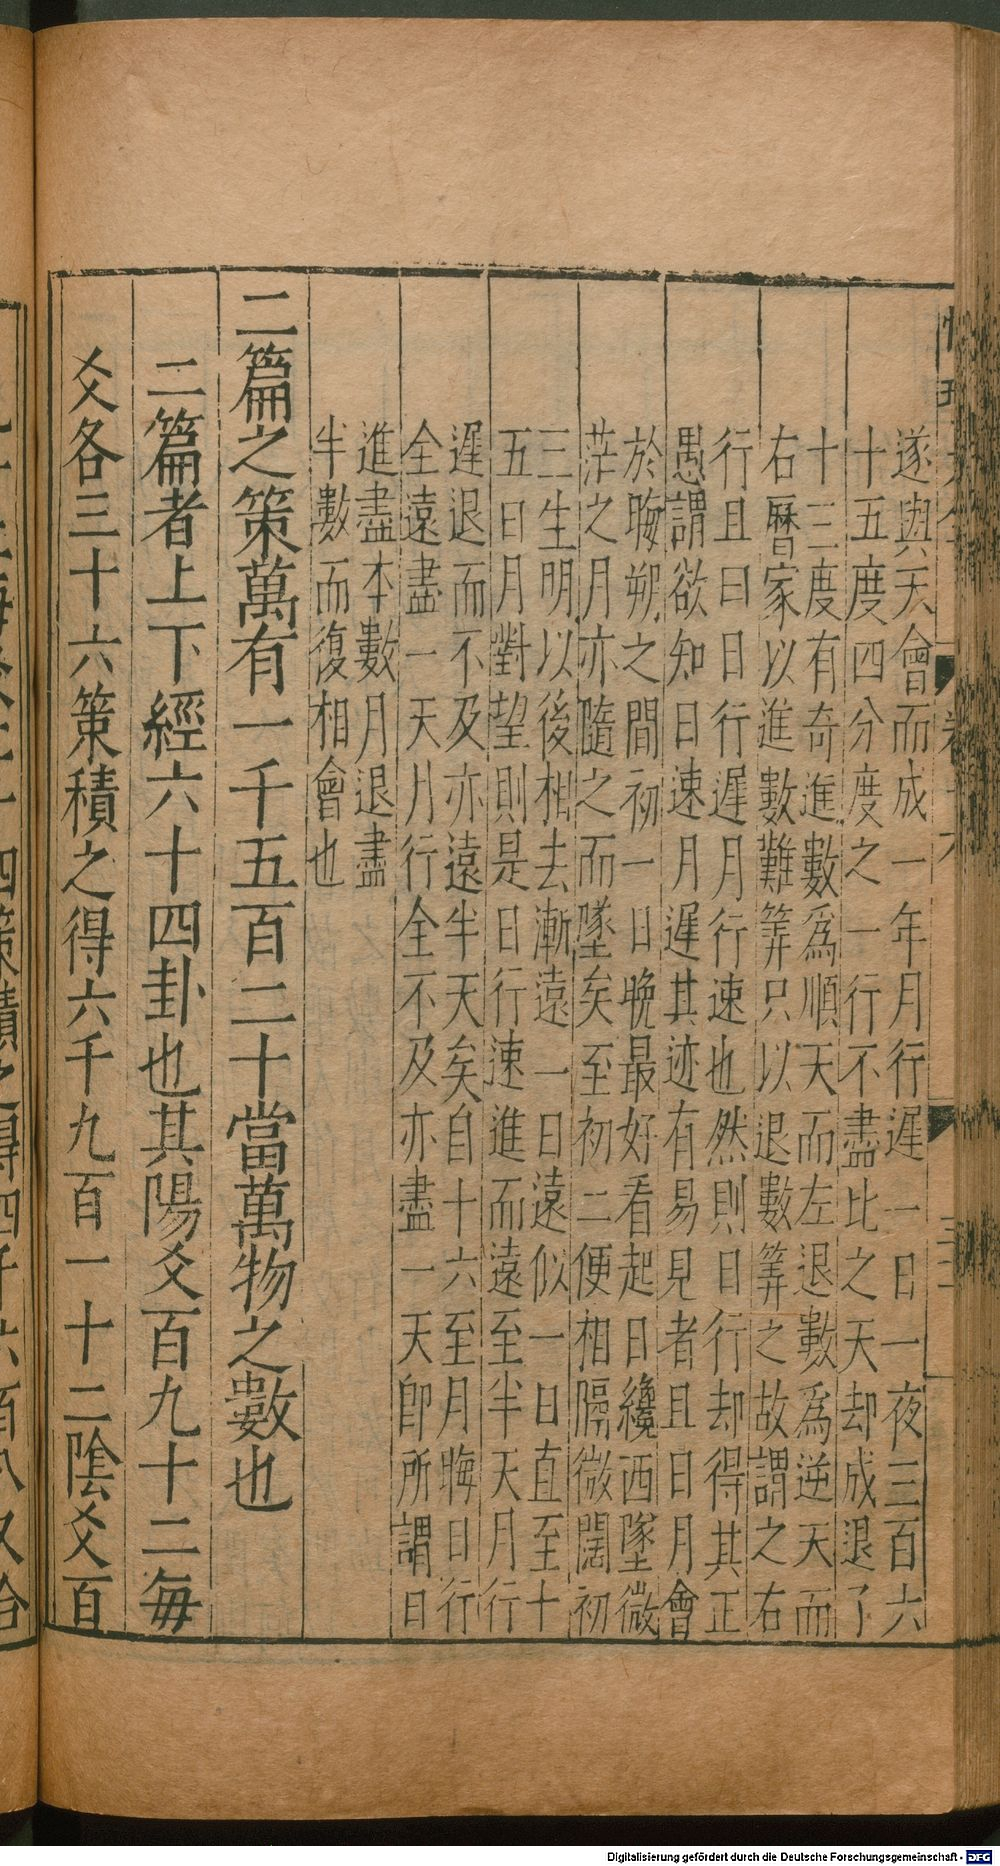 遂與天會而成一年月行遲一日一夜三百六
十五度四分度之一行不盡比之天却成退了
十三度有奇進數爲順天而左退數爲逆天而
右曆家以進數難筭只以退數筭之故謂之右
行且曰日行遲月行速也然則日行却得其正
愚謂欲知日速月遲其迹有易見者且日月會
於晦朔之間初一日晚最好看起日纔西墜微
茫之月亦隨之而墜矣至初二便相隔微闊初
三生明以後相去漸遠一日遠似一日直至十
五日月對望則是日行速進而遠至半天月行
遲退而不及亦遠半天矣自十六至月晦日行
全遠盡一天月行全不及亦盡一天卽所謂日
進盡本數月退盡
半數而復相會也
二篇之策萬有一千五百二十當萬物之數也
二篇者上下經六十四卦也其陽爻百九十二每
爻各三十六策積之得六千九百一十二陰爻百
Digitalisierung gefördert durch die Deutsche Forschungsgemeinschaft - DFG